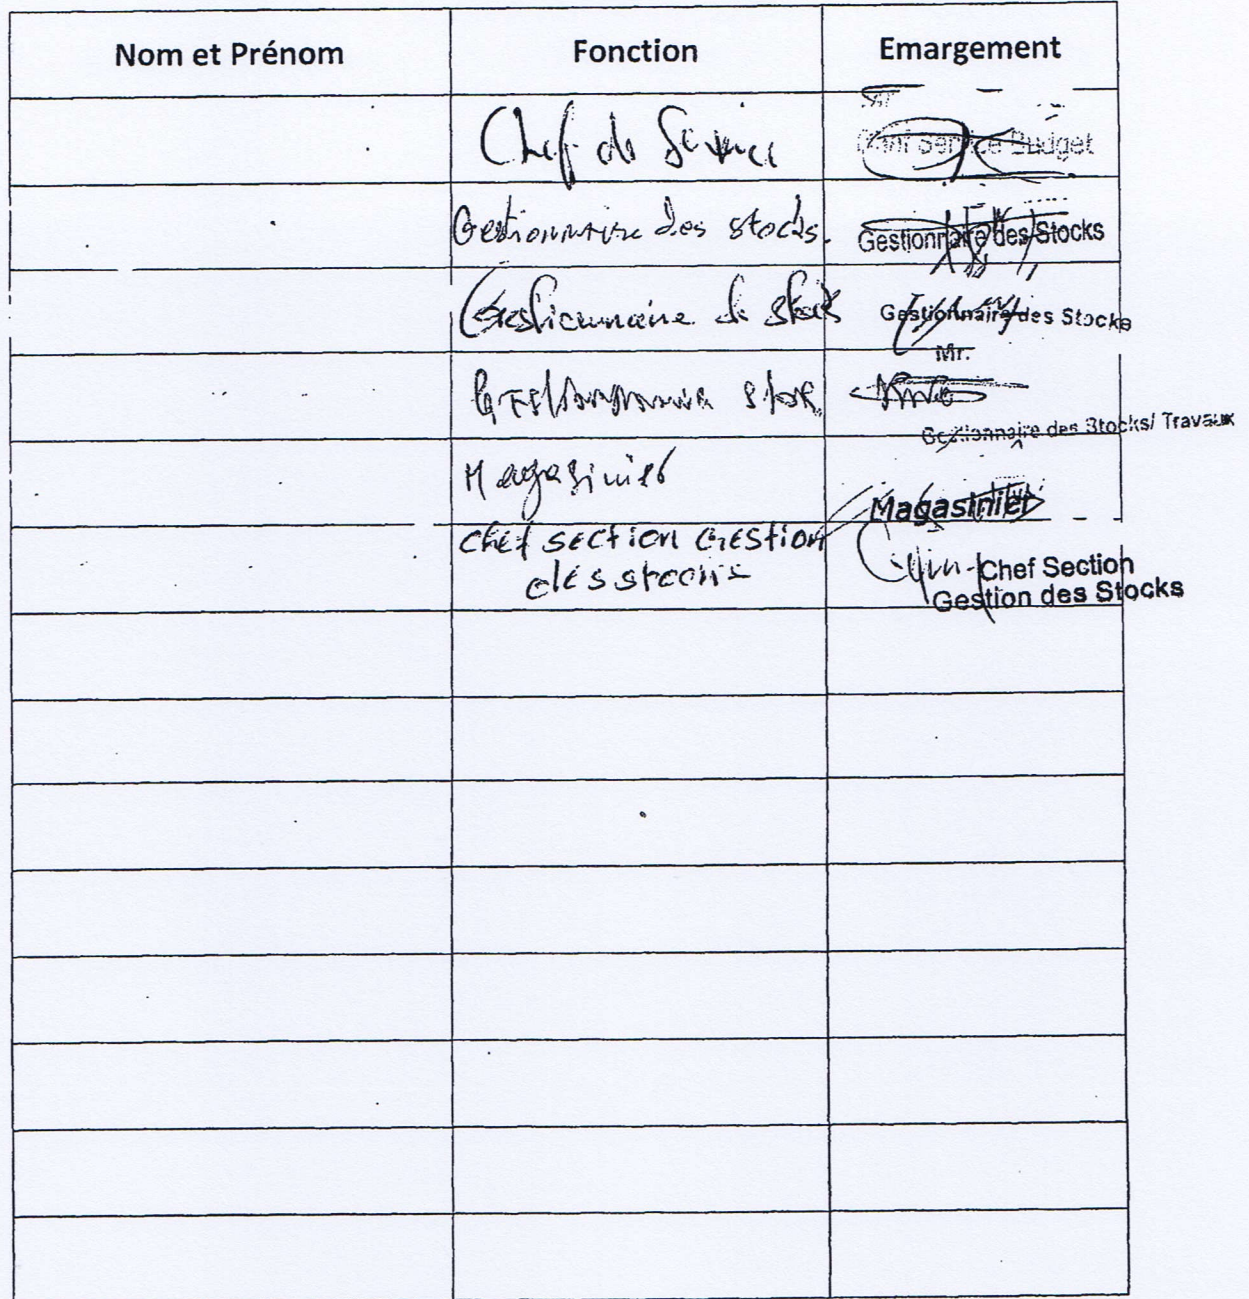 Nom et Prénom Fonction Emargement
Chef de Service Chef Service Budget
Gestionnaire des stocks. Gestionnaire des Stocks
Gestionnaire de stock Gestionnaire des Stocks
Mr.
Gestionnaire stock
Gestionnaire des Stocks/ Travaux
Magasinier
Magasinier
Chef section GESTION
des stocks
Chef Section
Gestion des Stocks